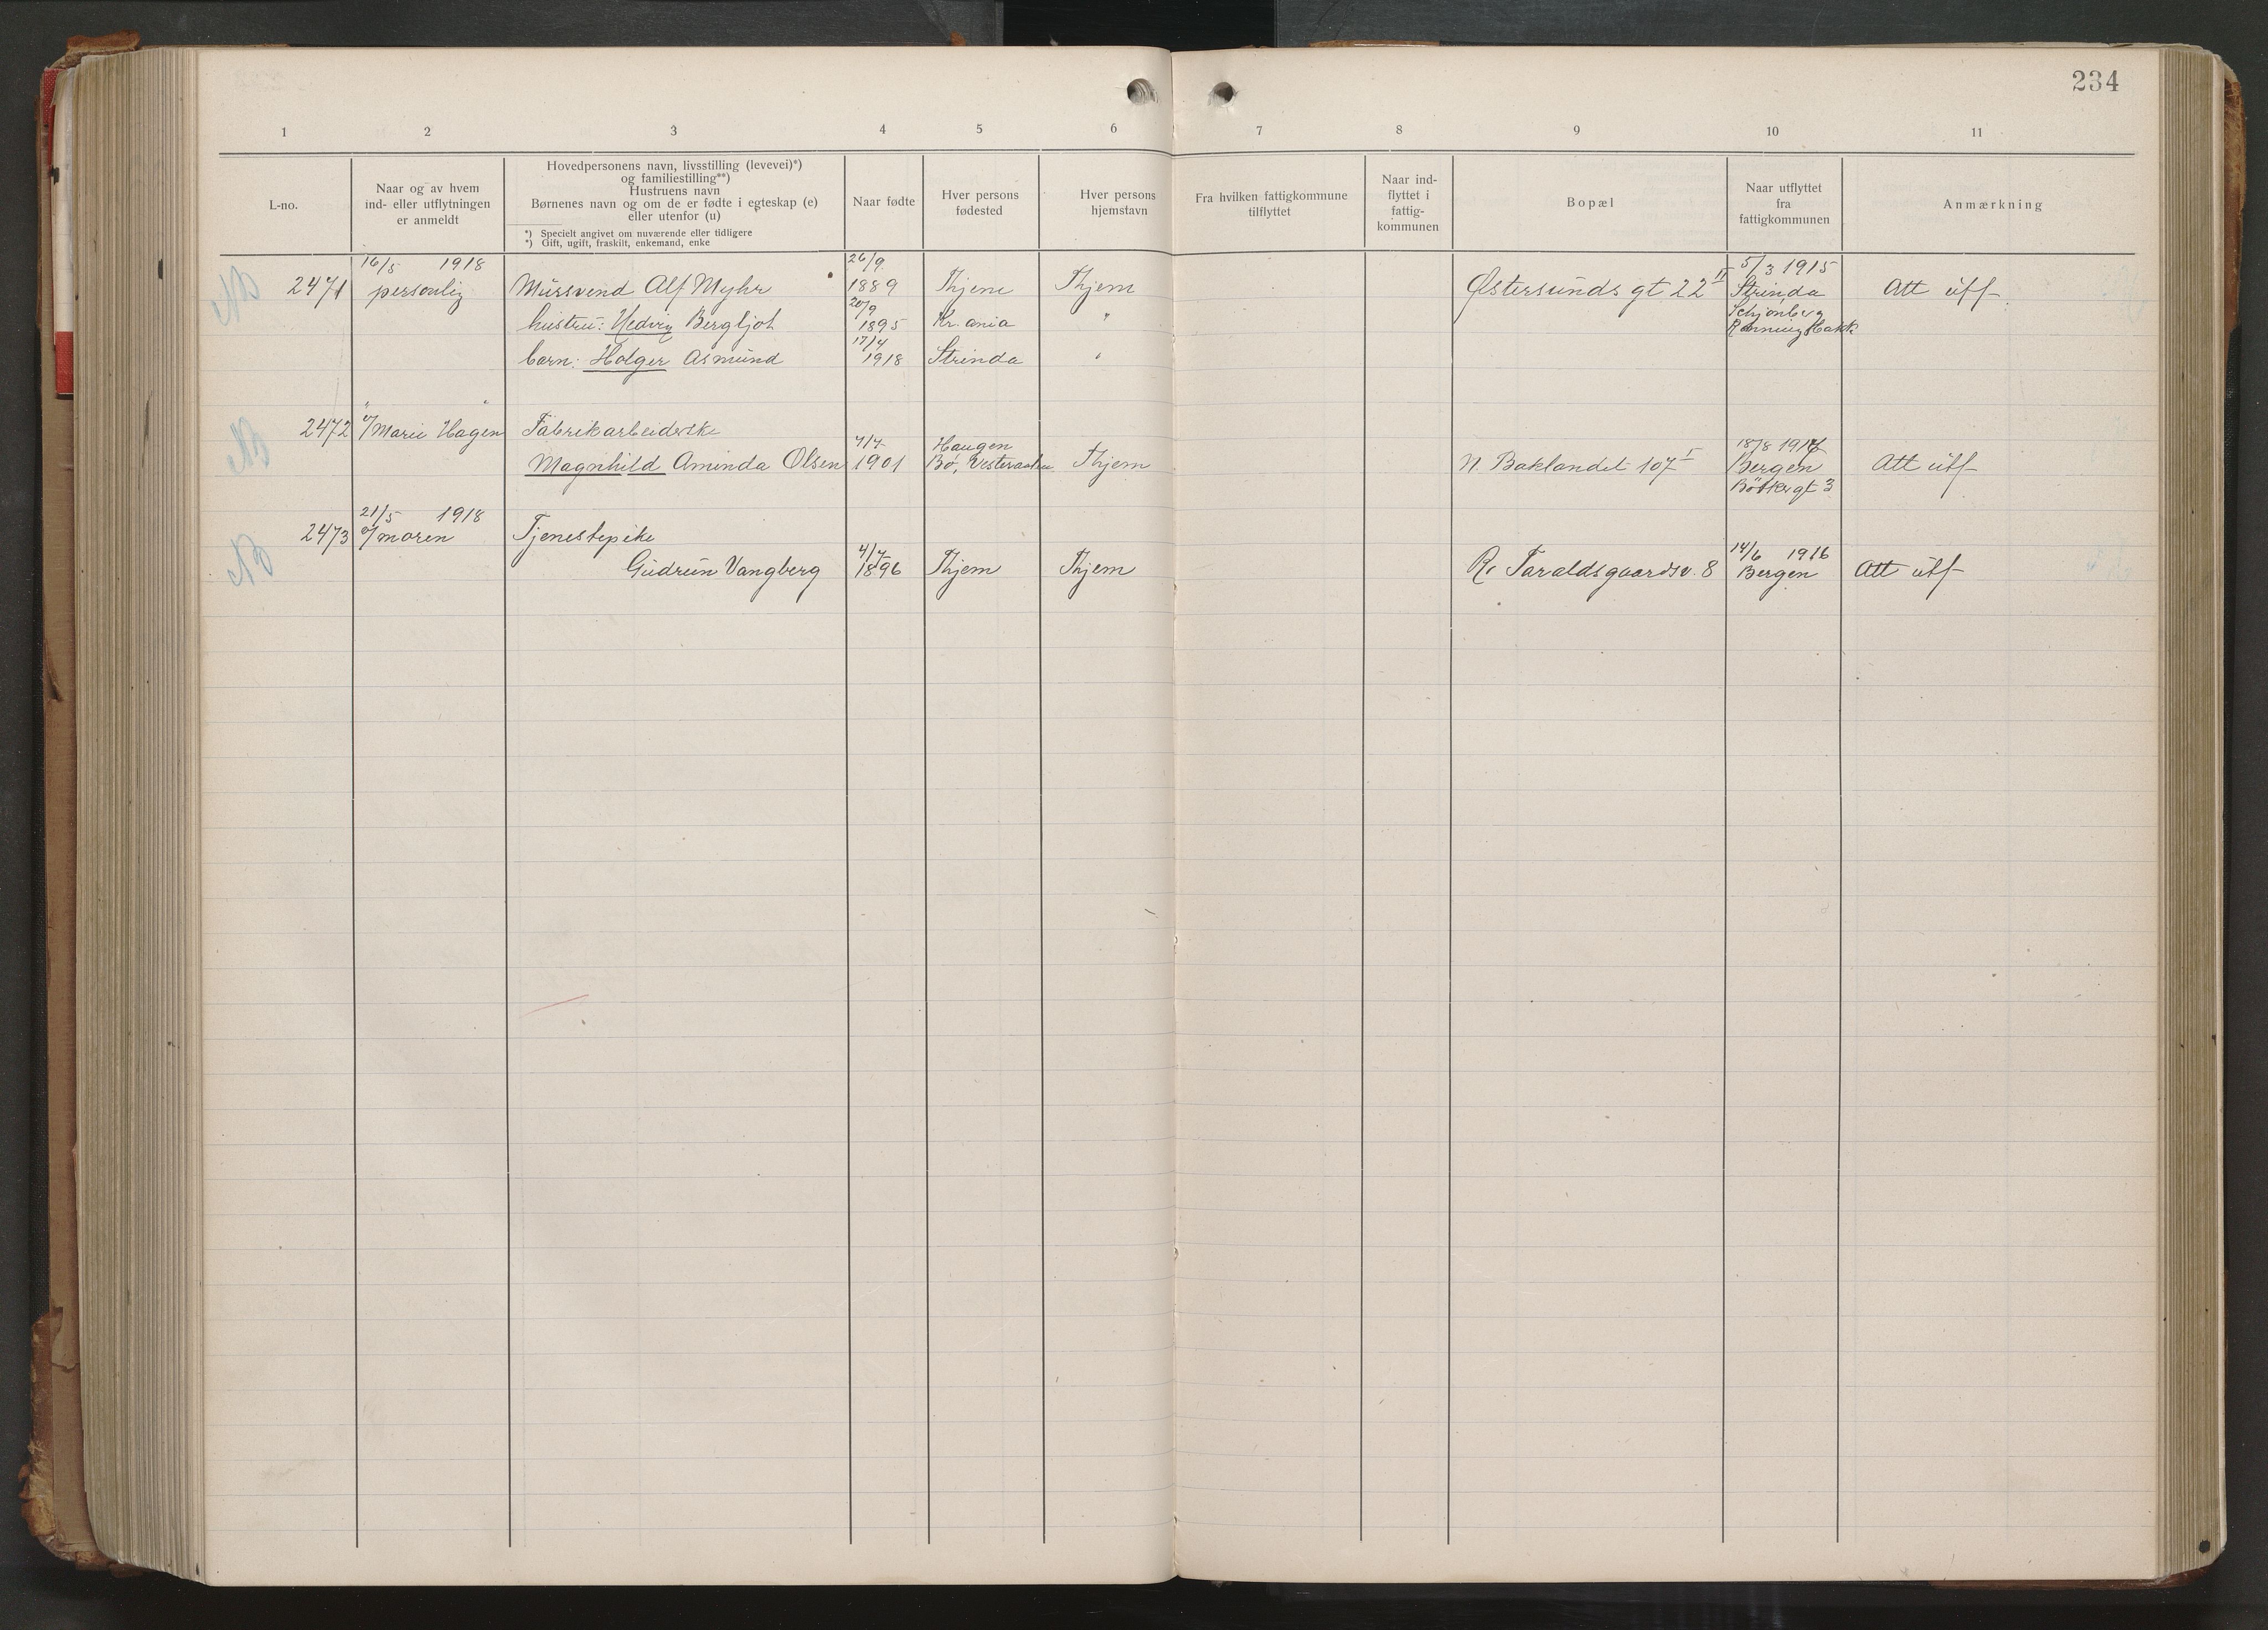 234
1 2 3 4 5 6 7 8 9 10 11
L-no.
Naar og av hvem
ind- eller utflytningen
er anmeldt
Hovedpersonens navn, livsstilling (levevei)*)
og familiestilling**)
Hustruens navn
Børnenes navn og om de er fødte i egteskap (e)
eller utenfor (u)
*) Specielt angivet om nuværende eller tidligere
*) Gift, ugift, fraskilt, enkemand, enke
Naar fødte
Hver persons
fødested
Hver persons
hjemstavn
Fra hvilken fattigkommune
tilflyttet
Naar ind-
flyttet i
fattig-
kommunen
Bopæl
Naar utflyttet
fra
fattigkommunen
Anmærkning
16/5 1918 26/9 5/3 1915
2471 personlig Mursvend Alf Myhr 1889 Thjem Thjem Østersunds gt 22 II Strinda Att utf
20/9
hustru: Hedvig Bergljot 1895 Kr.ania "
17/4
barn: Holger Asmund 1918 Strinda "
" "
2472 v/Marie Hagen Fabrikarbeiderske
7/7 Haugen 18/8 1917
Magnhild Aminda Olsen 1901 Bø, Vesteraalen Thjem N. Baklandet 107 I Bergen Att utf
21/5 1918
2473 v/moren Tjenestepike
4/7 14/6 1916
Gudrun Vangberg 1896 Thjem Thjem R. Taraldsgaardsv. 8 Bergen Att utf